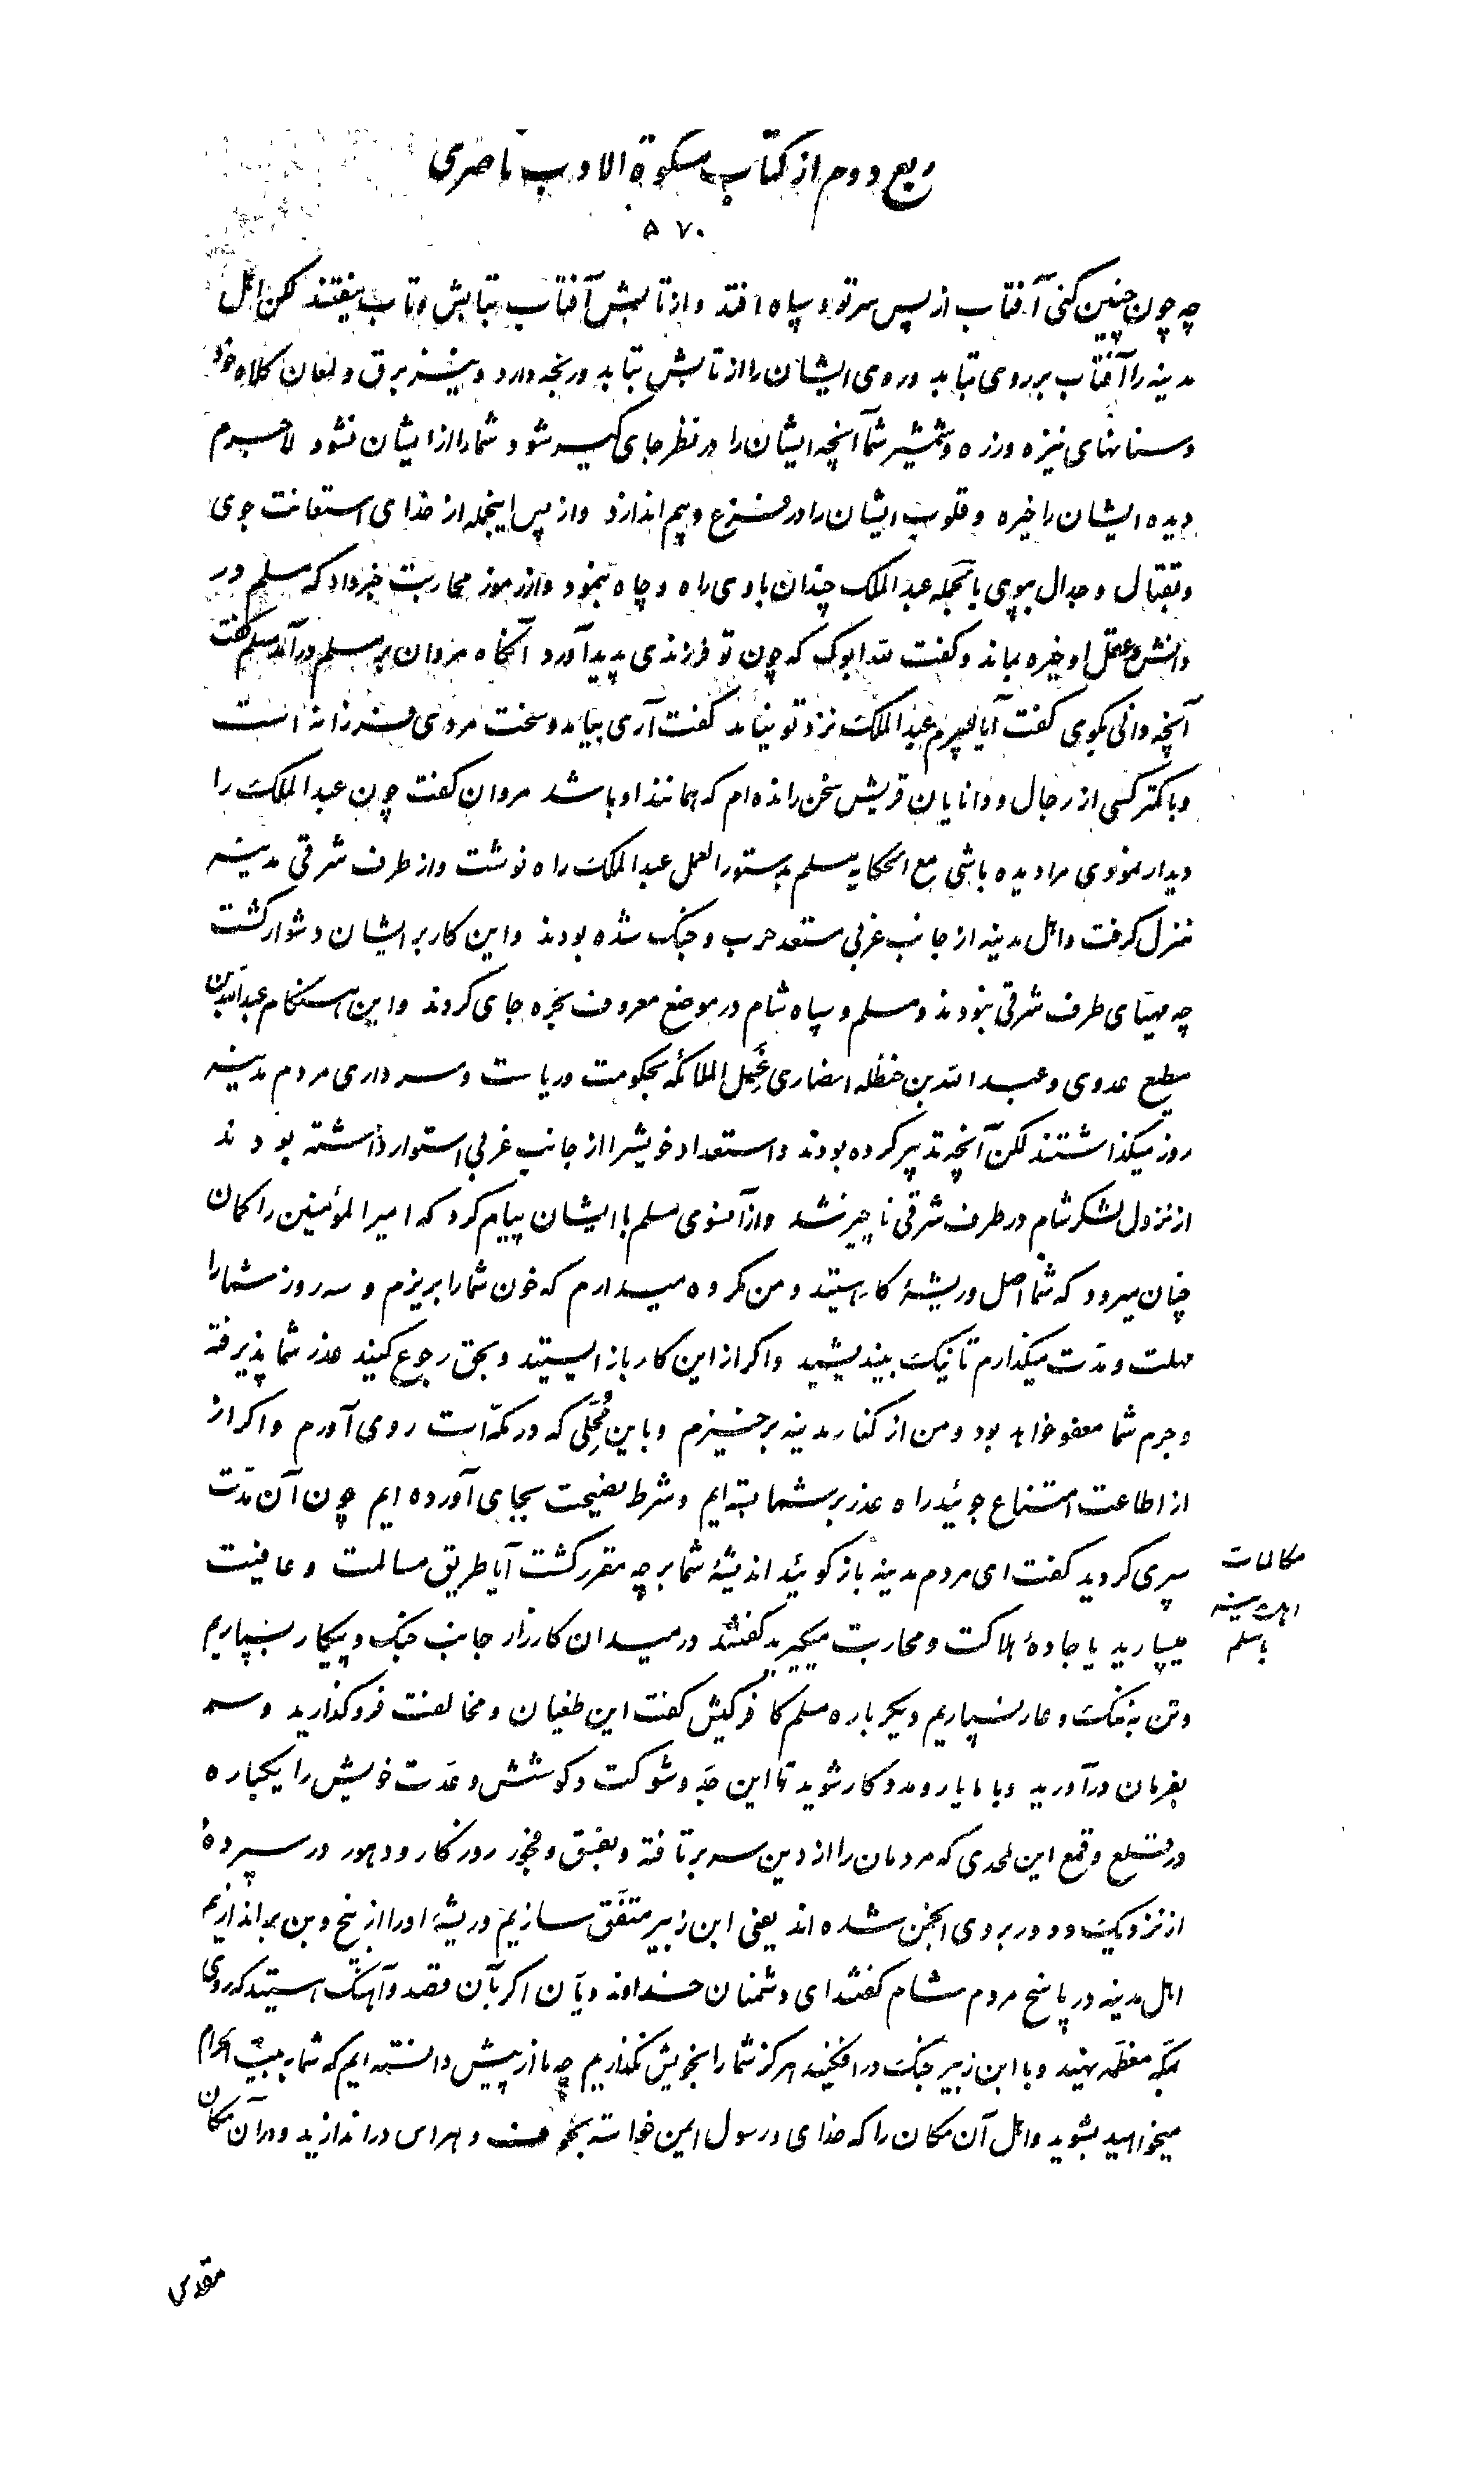 ربع دوم از کتاب مشکوة الادب ناصری
۵۷۰
چه چون چنین کنی آفتاب از پس سر تو و سپاه افتد و از تابش آفتاب بتابش و تاب نیفتند لکن اهل
مدینه را آفتاب بر روی بتابد و روی ایشان را از تابش بتابد و رنجه دارد و نیز برق و لمعان کلاه خود
و سنانهای نیزه و زره و شمشیر شما آنچه ایشان را در نظر جای گیر شود شما را از ایشان نشود لاجرم
دیده ایشان را خیره و قلوب ایشان را در فزع و بیم اندازد و از پس اینجمله از خدای استعانت جوی
و بقتال و جدال بپوی بالجمله عبد الملک چندان با وی راه و چاه بنمود و از رموز محاربت خبر داد که مسلم در
دانش و عقل او خیره بماند و گفت لله ابوک که چون تو فرزندی پدید آورد آنگاه مروان بر مسلم در آمد مسلم گفت
آنچه دانی بگوی گفت آیا پسرم عبد الملک نزد تو نیامد گفت آری بیامد و سخت مردی فرزانه است
و با کمتر کسی از رجال و دانایان قریش سخن رانده ام که همانند او باشد مروان گفت چون عبد الملک را
دیدار نمودی مرا دیده باشی مع الحکایه مسلم بدستور العمل عبد الملک راه نوشت و از طرف شرقی مدینه
منزل گرفت و اهل مدینه از جانب غربی مستعد حرب و جنگ شده بودند و این کار بر ایشان دشوار گشت
چه مهیای طرف شرقی نبودند و مسلم و سپاه شام در موضع معروف بحره جای کردند و این هنگام عبد الله بن
مطیع عدوی و عبد الله بن حنظله انصاری غسیل الملائکه بحکومت و ریاست و سرداری مردم مدینه
روز میگذاشتند لکن آنچه تدبیر کرده بودند و استعداد خویش را از جانب غربی استوار داشته بودند
از نزول لشکر شام در طرف شرقی ناچیز شد و از آنسوی مسلم با ایشان پیام کرد که امیر المؤمنین را گمان
چنان میرود که شما اصل و ریشهٔ کار هستید و من مکروه میدارم که خون شما را بریزم و سه روز شما را
مهلت و مدت میگذارم تا نیک بیندیشید و اگر از این کار باز ایستید و بحق رجوع کنید عذر شما پذیرفته
و جرم شما معفو خواهد بود و من از کنار مدینه برخیزم و باین مُحِلّی که در مکه است روی آورم و اگر از
از اطاعت امتناع جوئید راه عذر بر شما بسته ایم و شرط نصیحت بجای آورده ایم چون آن مدت
سپری گردید گفت ای مردم مدینه باز گوئید اندیشهٔ شما بر چه مقرر گشت آیا طریق مسالمت و عافیت
میسپارید یا جادهٔ هلاکت و محاربت میگیرید گفتند در میدان کارزار جانب جنگ و پیکار بسپاریم
و تن به ننگ و عار نسپاریم دیگر باره مسلم کافر کیش گفت این طغیان و مخالفت فرو گذارید و سر
بفرمان در آورید و با ما یار و مددکار شوید تا این جد و شوکت و کوشش و عدت خویش را یکباره
در قلع و قمع این ملحدی که مردمان را از دین سر بر تافته و بفسق و فجور روزگار و دهور در سپرده
از نزدیک و دور بر وی انجمن شده اند یعنی ابن زبیر متفق سازیم و ریشهٔ او را از بیخ و بن بر اندازیم
اهل مدینه در پاسخ مردم شام گفتند ای دشمنان خداوند دیان اگر بآن قصد و آهنگ هستید که روی
بمکه معظمه نهید و با ابن زبیر جنگ در افکنید هرگز شما را بخویش نگذاریم چه ما از پیش دانسته ایم که شما به بیت الحرام
میخواهید بشوید و اهل آن مکان را که خدای و رسول ایمن خواسته بخوف و هراس در اندازید و در آن مکان
مقدس
مکالمات
اهل مدینه
با مسلم